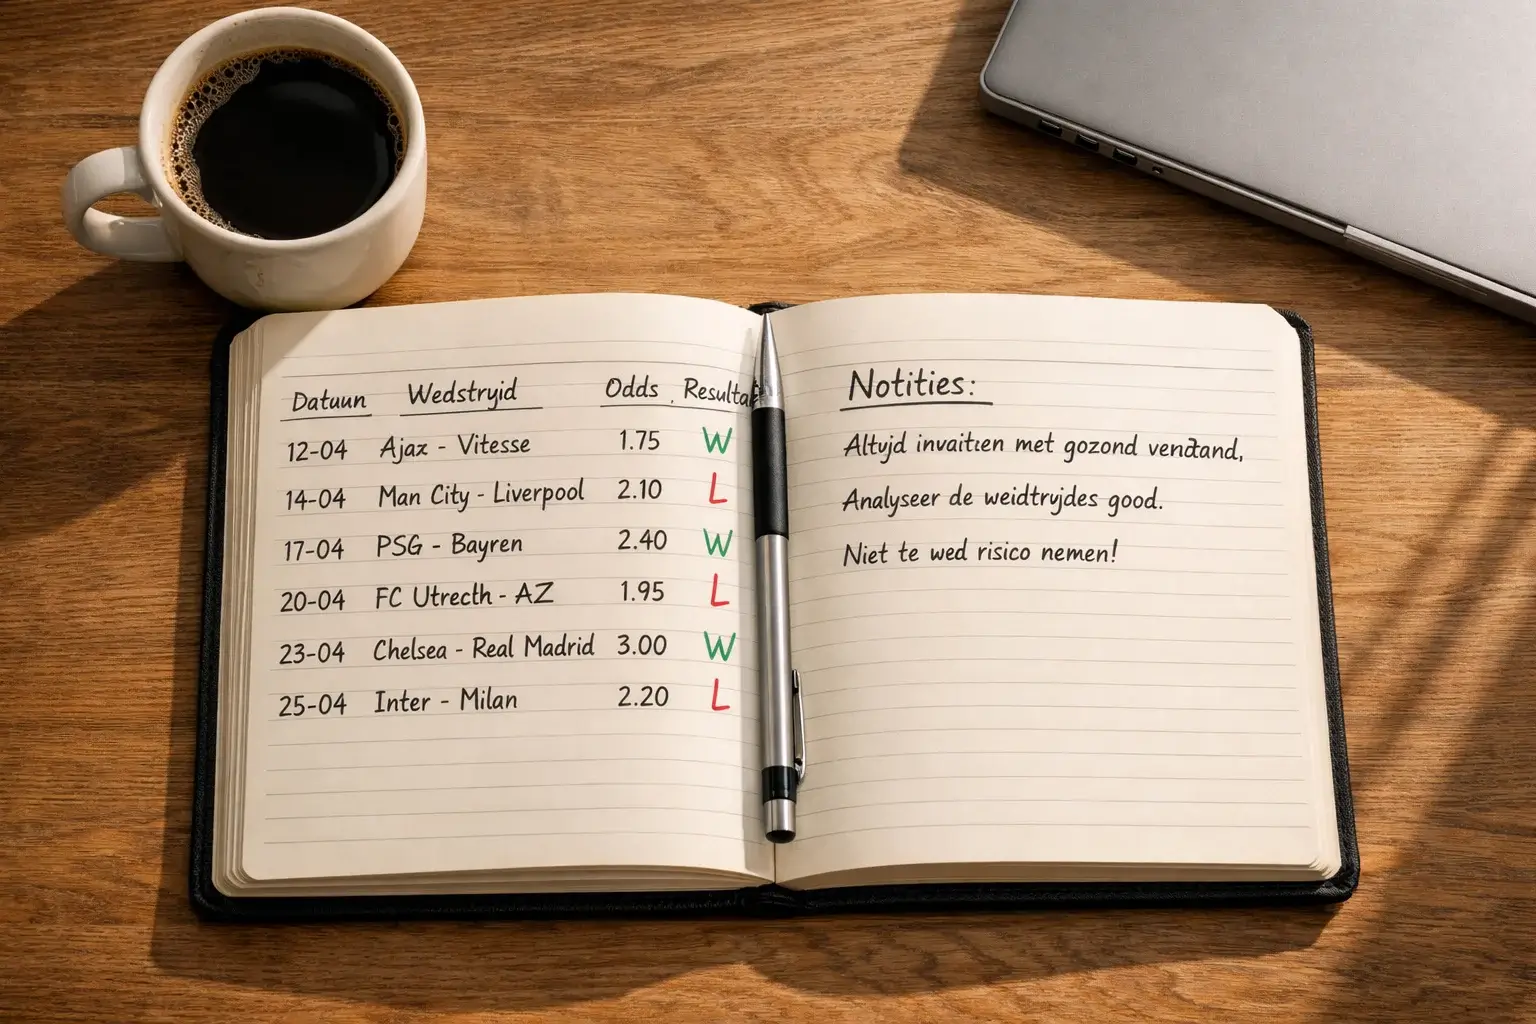 Datuun Wedstryid Odds Resultat
12-04 Ajax - Vitesse 1.75 W
14-04 Man City - Liverpool 2.10 L
17-04 PSG - Bayren 2.40 W
20-04 FC Utrecth - AZ 1.95 L
23-04 Chelsea - Real Madrid 3.00 W
25-04 Inter - Milan 2.20 L
Notities:
Altyjd invaitien met gozond vendtand,
Analyseer de weidtryjdes good.
Niet te wed risico nemen!